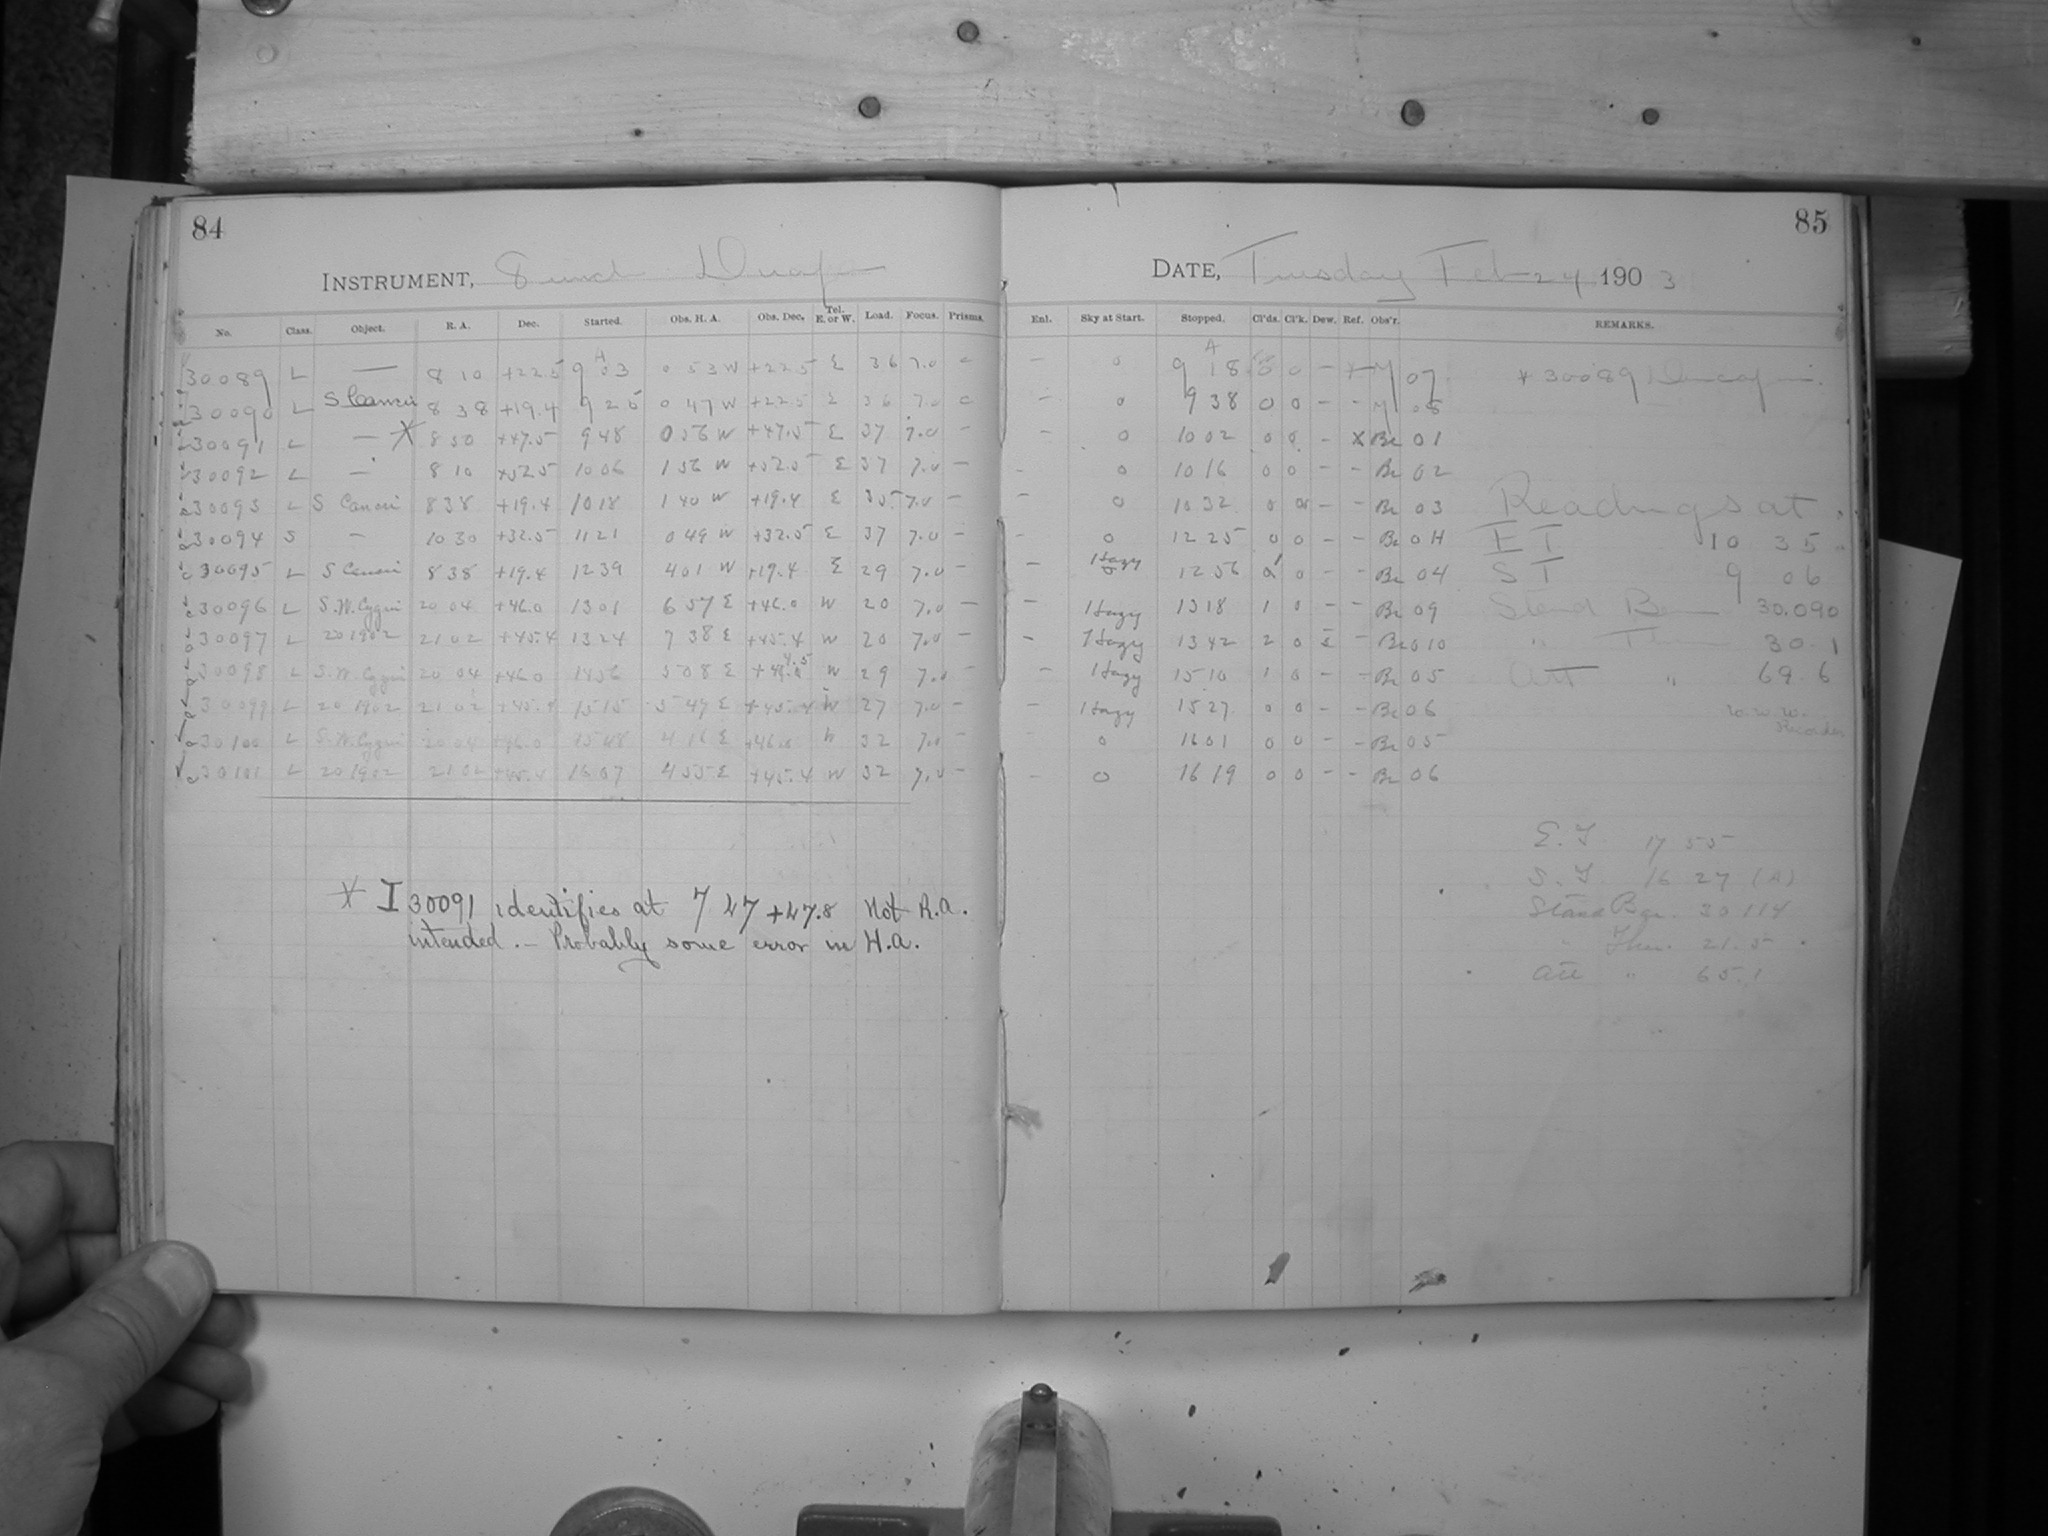 84
INSTRUMENT, 8 inch Draper
No. Class. Object. R. A. Dec. Started. Obs. H. A. Obs. Dec. Tel. E. or W. Load. Focus. Prisms.
30089 L — 8 10 +22.5 9 03 0 53 W +22.5 E 36 7.0 —
30090 L S Cancri 8 38 +19.4 9 25 0 47 W +22.5 E 36 7.0
30091 L — X 8 50 +47.5 9 48 0 56 W +47.5 E 37 7.0 —
30092 L — 8 10 +32.5 10 06 1 56 W +32.5 E 37 7.0 —
30093 L S Cancri 8 38 +19.4 10 18 1 40 W +19.4 E 35 7.0 —
30094 S — 10 30 +32.5 11 21 0 49 W +32.5 E 37 7.0 —
30095 L S Cancri 8 38 +19.4 12 39 4 01 W +19.4 E 29 7.0 —
30096 L S.W. Cygni 20 04 +46.0 13 01 6 57 E +46.0 W 20 7.0 —
30097 L 20 1902 21 02 +45.4 13 24 7 38 E +45.4 W 20 7.0 —
30098 L S.W. Cygni 20 04 +46.0 14 56 5 08 E W 29 7.0 —
30099 L 20 1902 21 02 +45.4 15 15 5 47 E +45.4 W 27 7.0 —
30100 L S.W. Cygni 20 04 +46.0 15 48 4 16 E +46.0 W 32 7.0 —
30101 L 20 1902 21 02 +45.4 16 07 4 55 E +45.4 W 32 7.0 —
X I 30091 identifies at 7 47 +47.8 Not R.A.
intended. — Probably some error in H.A.
85
DATE, Tuesday Feb 24 1903
Enl. Sky at Start. Stopped. Cl'ds. Cl'k. Dew. Ref. Obs'r. REMARKS.
— 0 9 18 0 — M 07 * 30089
— 0 9 38 0 0 — — M 08
— 0 10 02 0 0 — X Br 01
— 0 10 16 0 0 — — Br 02
— 0 10 32 0 — — Br 03 Readings at
— 0 12 25 0 0 — — Br 0H E T 10 35
— Hazy 12 56 0 — — Br 04 S T 9 06
— Hazy 13 18 1 0 — — Br 09 Stand Bar 30.090
— Hazy 13 42 2 0 — Br 010 " Ther 30.1
— Hazy 15 10 1 0 — — Br 05 Att " 69.6
— Hazy 15 27 0 0 — — Br 06
0 16 01 0 0 — — Br 05 Recorder
— 0 16 19 0 0 — — Br 06
E. T. 17 55
S. T. 16 27 (A)
Stand Bar. 30 114
" Ther. 21.5
Att " 65.1